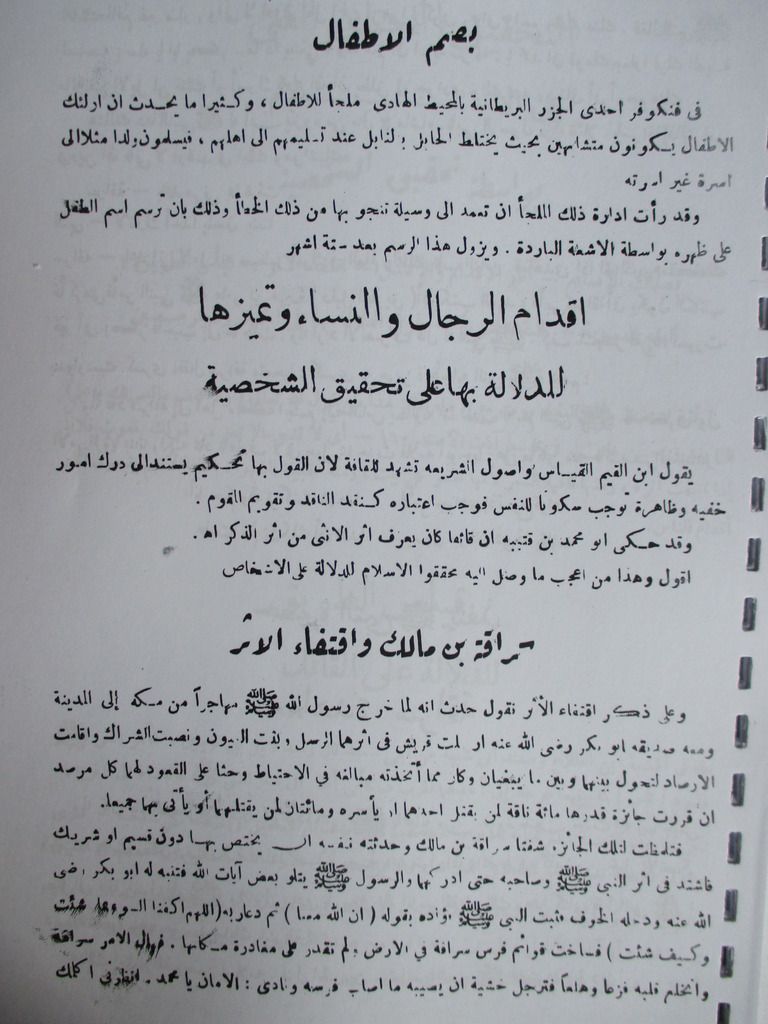 بصم الاطفال
فى فنكوفر احدى الجزر البريطانية بالمحيط الهادى ملجأ للاطفال ، وكثيرا ما يحدث ان اولئك
الاطفال يكونون متشابهين بحيث يختلط الحابل بالنابل عند تسليمهم الى اهلهم ، فيسلمون ولدا مثلا الى
اسرة غير اسرته
وقد رأت ادارة ذلك الملجأ ان تعمد الى وسيلة تنجو بها من ذلك الخطأ وذلك بان ترسم اسم الطفل
على ظهره بواسطة الاشعة الباردة . ويزول هذا الرسم بعد ستة اشهر
اقدام الرجال واالنساء وتميزها
للدلالة بها على تحقيق الشخصية
يقول ابن القيم القياس واصول الشريعه تشهد للقافة لان القول بها حكم يستند الى درك امور
خفيه وظاهرة توجب سكونا للنفس فوجب اعتباره كنقد الناقد وتقويم المقوم .
وقد حكى ابو محمد بن قتيبه ان قائفا كان يعرف اثر الانثى من اثر الذكر اه .
اقول وهذا من اعجب ما وصل اليه محققوا الاسلام للدلالة على الاشخاص
سراقة بن مالك واقتفاء الاثر
وعلى ذكر اقتفاء الأثر نقول حدث انه لما خرج رسول الله ﷺ مهاجراً من مكه إلى المدينة
ومعه صديقه ابو بكر رضى الله عنه ارسلت قريش فى اثرهما الرسل وبثت العيون ونصبت الشراك واقامت
الارصاد لتحول بينهما وبين ما يبغيان وكان مما أتخذته مبالغه في الاحتياط وحثا على القعود لهما كل مرصد
ان قررت جائزة قدرها مائة ناقة لمن يقتل احدهما او يأسره ومائتان لمن يقتلهما أو يأتى بهما جميعا.
فتلمظت لتلك الجائزه شفتا سراقة بن مالك وحدثته نفسه ان يختص بها دون قسيم او شريك
فاشتد فى اثر النبى ﷺ وصاحبه حتى ادركهما والرسول ﷺ يتلو بعض آيات الله فتنبه له ابو بكر رضى
الله عنه ودخله الخوف فثبت النبى ﷺ فؤاده بقوله ( ان الله معنا ) ثم دعا ربه (اللهم اكفنا شئت
وكيف شئت ) فساخت قوائم فرس سراقة في الارض ولم تقدر على مغادرة مكانها . الامر سراقة
وانخلع قلبه فزعا وهلعاً فترجل خشية ان يصيبه ما اصاب فرسه ونادى : الامان يا محمد . انظرنى اكلمك